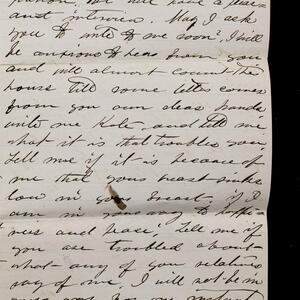 person, but will have a pleas-
ant interview. May I ask
you to write to me soon? I will
be anxious to hear from you
and will almost count the
hours till some letter comes
from you our dear hands
write me Kate, and tell me
what it is that troubles you
tell me if it is because of
me that your heart sinks
low in your breast, if I
am in your way to happi-
ness and peace. Tell me if
you are troubled about
what any of your relatives
say of me. I will not be in